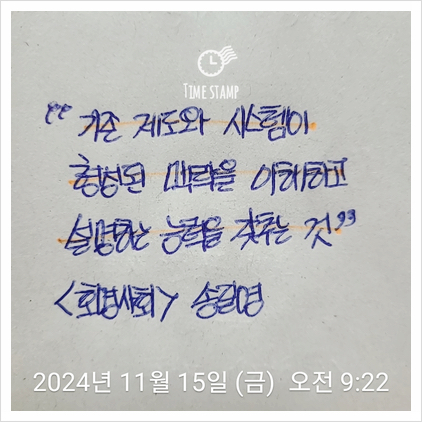 TIME STAMP
"기존 제도와 시스템이
형성된 맥락을 이해하고
설명하는 능력을 갖추는 것"
<호명사회> 송길영
2024년 11월 15일 (금) 오전 9:22